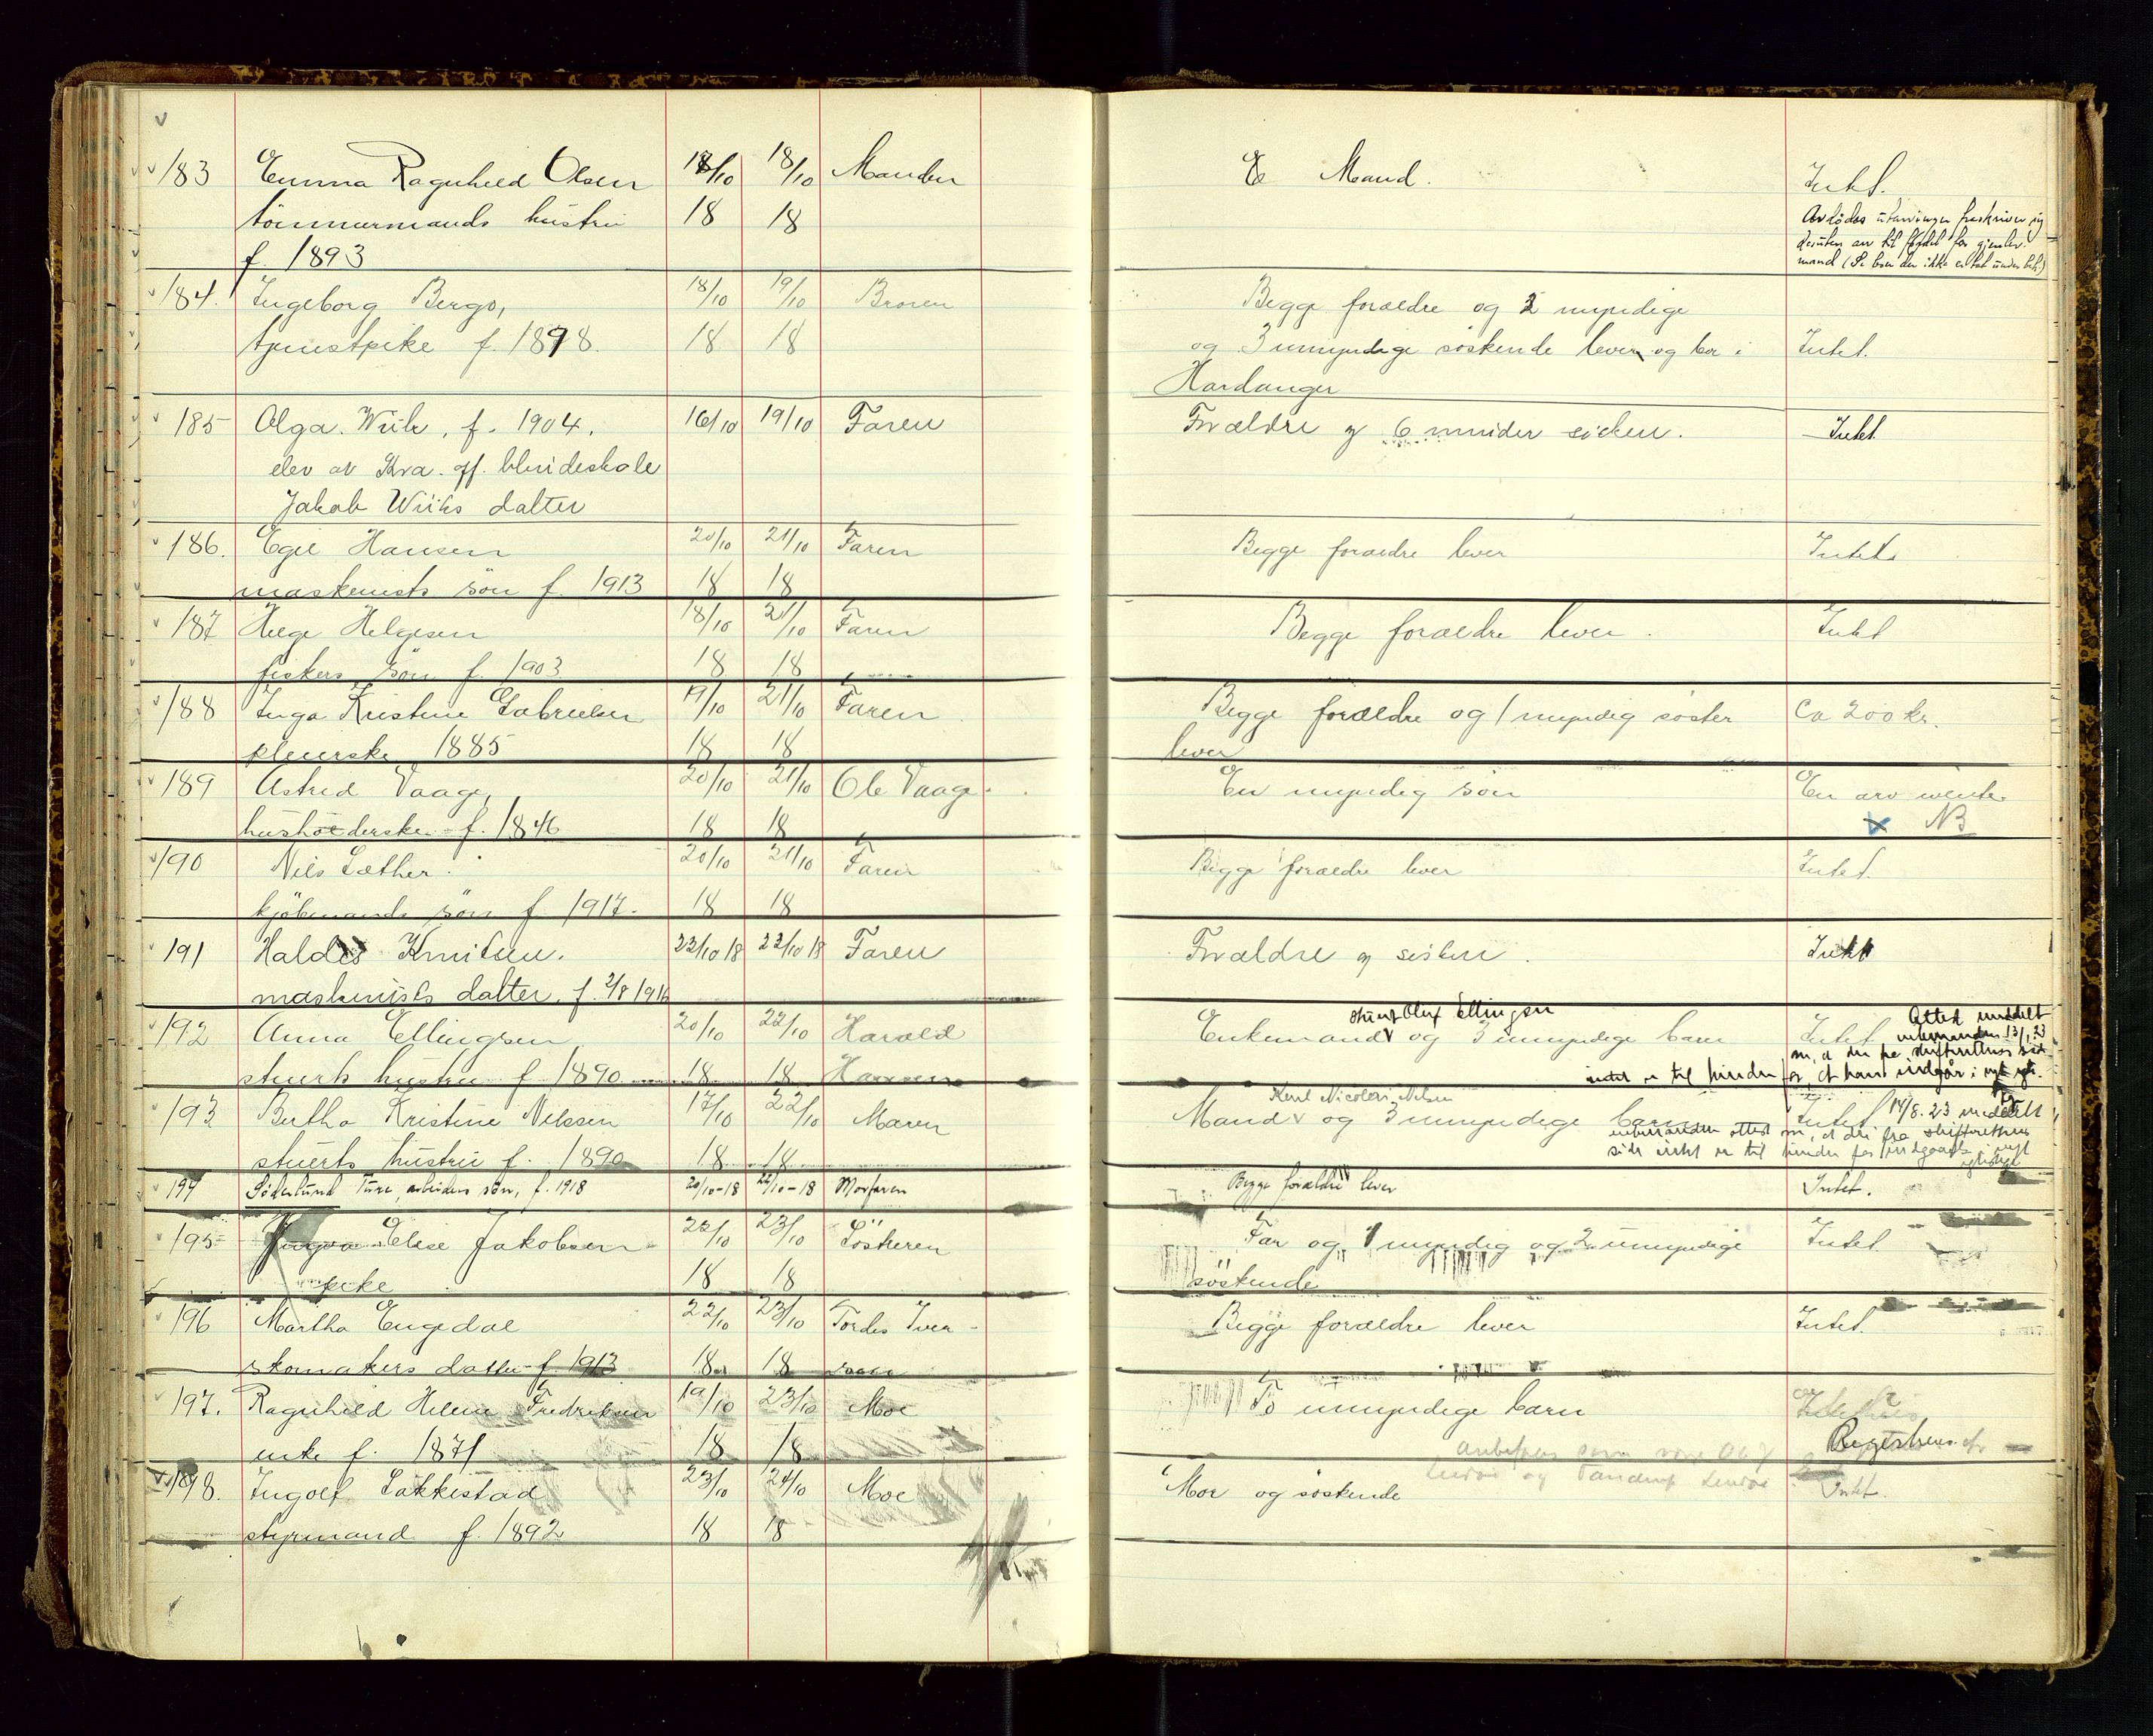 183 Emma Ragnhild Olsen 18/10 18/10 Manden E Mand. Intet.
tömmermands hustru 18 18 Avdödes
f. 1893 mand
184. Ingeborg Bergo, 18/10 19/10 Broren Begge forældre og 2 myndige
tjenestpike f. 1898. 18 18 og 3 umyndige söskende lever og bor i Intet.
Hardanger
185 Olga Wiik, f. 1904. 16/10 19/10 Faren Forældre og 6 søsken. Intet
elev av Kra. off. blindeskole
Jakob Wiiks datter
186. Egil Hansen 20/10 21/10 Faren Begge forældre lever Intet.
maskinists sön f. 1913 18 18
187 Helge Helgesen 18/10 21/10 Faren Begge forældre lever. Intet
fiskers sön f. 1903 18 18
188 Inga Kristine Gabrielsen 19/10 21/10 Faren Begge forældre og 1 myndig söster Ca 200 kr.
pleierske 1885 18 18 lever
189 Astrid Vaage, 20/10 21/10 Ole Vaage. En myndig sön En arv
husholderske f. 1846 18 18 NB
190 Nils Sæther. 20/10 21/10 Faren Begge forældre lever Intet.
kjöbmands sön f. 1917. 18 18
191 Haldis Knutsen. 22/10 18 22/10 18 Faren Forældre og søsken. Intet
maskinists datter. f. 2/8 1916
stuert Oluf Ellingsen Attest meddelt
192 Anna Ellingsen 20/10 22/10 Harald Enkemand og 3 umyndige barn Intet enkemanden 13/1.23
om, at der fra skifterettens side
stuerts hustru f. 1890 18 18 Hansen intet er til hinder for, at han indgår i nyt
Karl Nicolai Nilsen
193 Bertha Kristine Nilssen 17/10 22/10 Maren Mand og 3 umyndige barn Intet 14/8.23 meddelt
enkemanden attest om, at der fra skifterettens
stuerts hustru f. 1890 18 18 side intet er til hinder for indgaaelse nyt
194 Söderlund Ture, arbeiders sön, f. 1918 20/10-18 22/10-18 Morfaren Begge forældre lever Intet.
195 Elise Jakobsen 22/10 23/10 Søsteren Far og 1 myndig og 2 umyndige Intet
pike 18 18 söskende
196 Martha Engedal 22/10 23/10 Tordis Iver- Begge forældre lever Intet.
skomakers datter f. 1913 18 18 sen
197. Ragnhild Helene Fredriksen 19/10 23/10 Moe To umyndige barn
enke f. 1871 18 18
og
198. Ingolf Sakkestad 23/10 24/10 Moe Mor og søskende Intet.
styrmand f. 1892 18 18